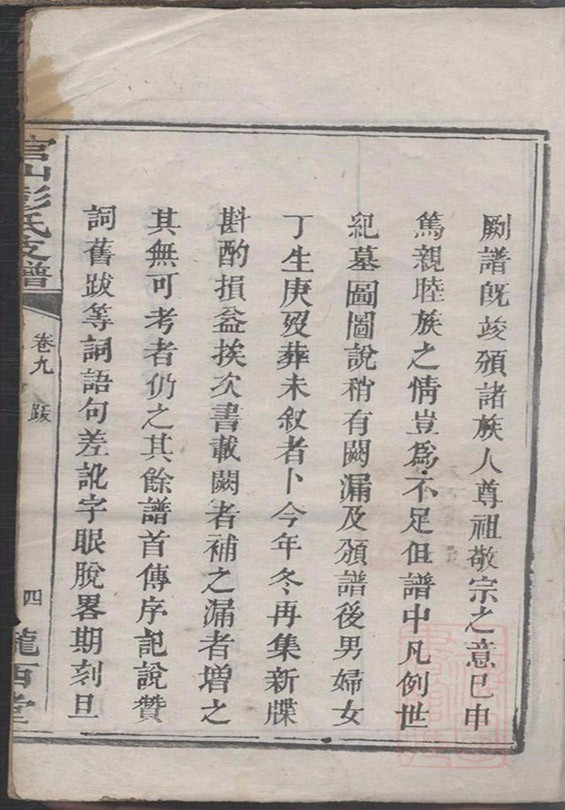 劂譜旣竣頒諸族人尊祖敬宗之意已申
篤親睦族之情豈爲不足但譜中凡例世
紀墓圖圖說稍有闕漏及頒譜後男婦女
丁生庚歿葬未叙者卜今年冬再集新牒
斟酌損益挨次書載闕者補之漏者增之
其無可考者仍之其餘譜首傳序記說贊
詞舊跋等詞語句差訛字眼脫畧期刻旦
官山彭氏支譜
卷九
跋
四
隴西堂